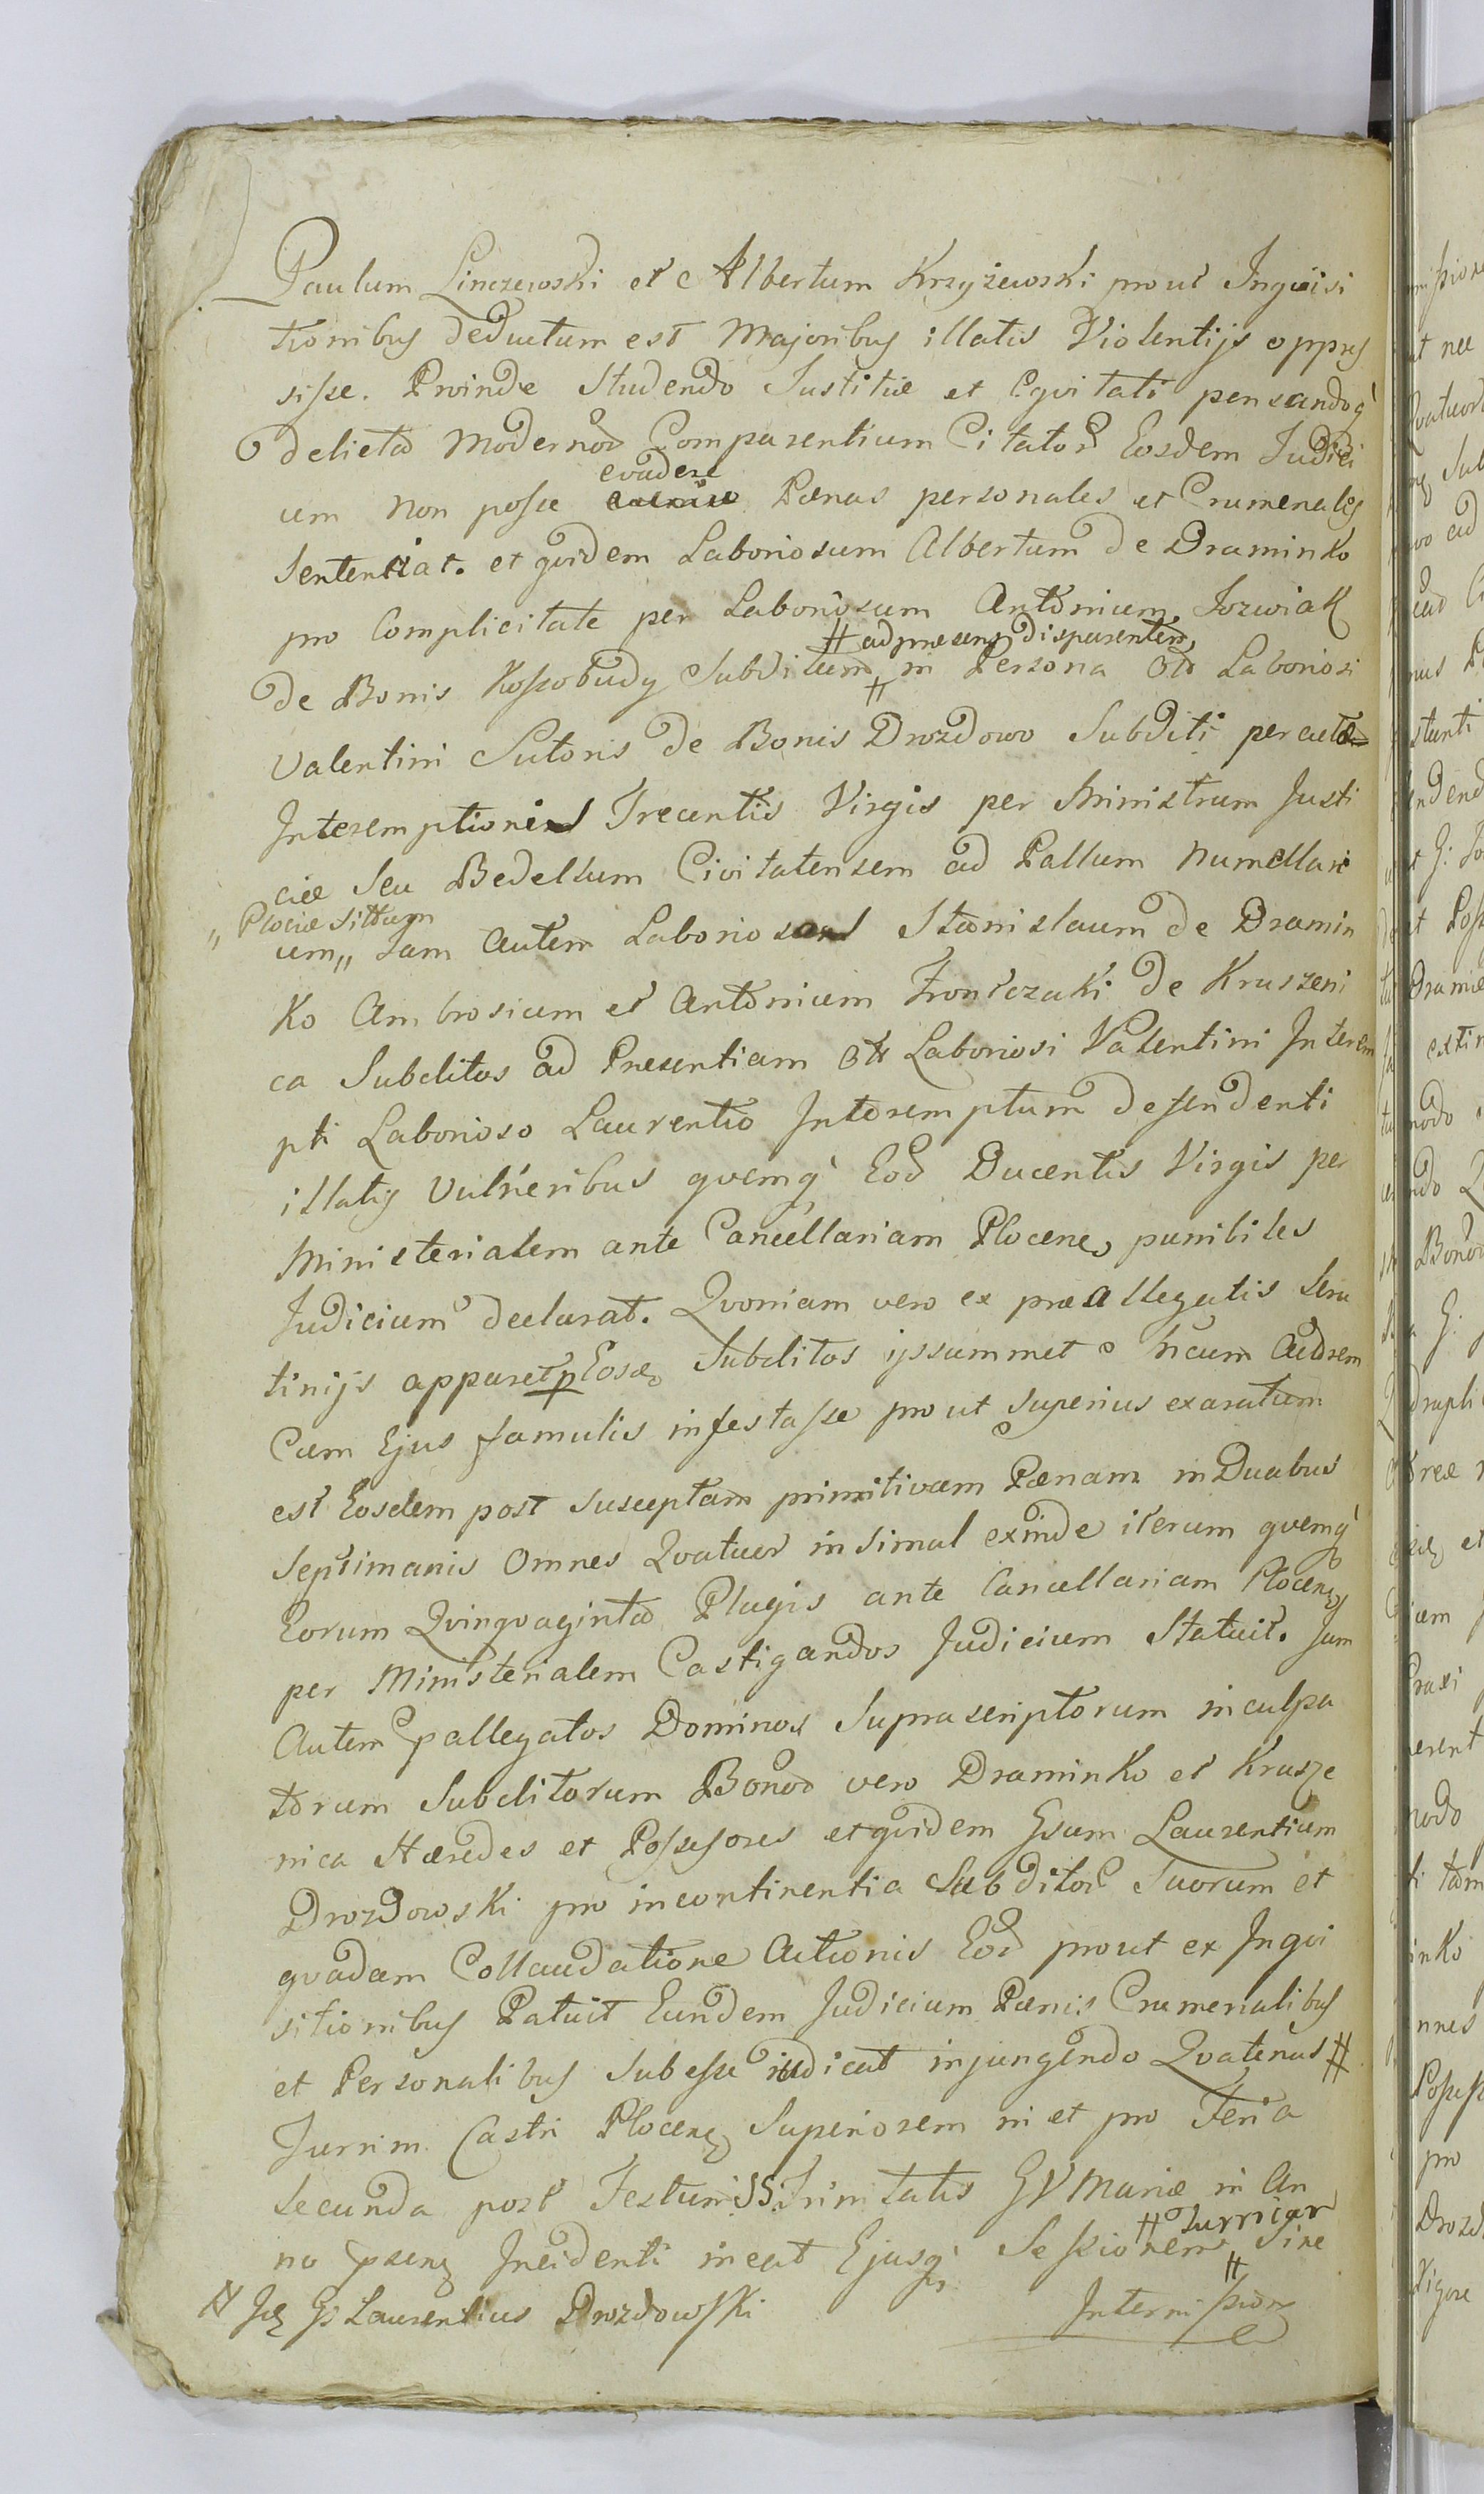 Paulum Linczewski et Albertum Krzyżewski prout Inqvisi
tionibus deductum est Majoribus illatis Violentijs oppres
sisse. Proinde Studendo Justitiæ et Eqvitati pensandoq̀
delicta Modernor Comparentium Citator Eosdem Judici
um non posse evadere Pænas personales et Crumenales
Sententiat. et qvidem Laboriosum Albertum de Draminko
pro Complicitate per Laboriosum Antonium Jozwiak
# ad præsens disparentem
de Bonis Kossobudy Subditum # in Persona Olt Laboriosi
Valentini Sutoris de Bonis Drozdowo Subditi percutæ
Interemptionis Trecentis Virgis per Ministrum Justi
ciæ Seu Bedellum Civitatensem ad Pallum Numellari
„ Plociæ Sittum
um„ Jam Autem Laboriosos Stanislaum de Dramin
ko Ambrosium et Antonium Fronczaki de Kruszeni
ca Subditos ad Presentiam Olt Laboriosi Valentini Interem
pti Laborioso Laurentio Interemptum defendenti
illatis Vulneribus qvemq̀ Eod Ducentis Virgis per
Ministerialem ante Cancellariam Plocen, punibiles
Judicium declarat. Qvoniam vero ex præallegatis Scru
tinijs apparet p Eosd, Subditos ipsummet Ncum Actorem
Cum Ejus famulis infestasse prout superius exaratum
est Eosdem post susceptam primitivam Pænam in Duabus
Septimanis Omnes Qvatuor insimul exinde iterum qvemq̀
Eorum Qvinqvaginta Plagis ante Cancellariam Plocen,
per Ministerialem Castigandos Judicium Statuit. Jam
Autem pallegatos Dominos Suprascriptorum inculpa
torum Subditorum Bonor vero Draminko et Krusze
nica Hæredes et Possessores et qvidem Gsum Laurentium
Drozdowski pro incontinentia Subditor Suorum et
qvadam Collaudatione Actionis Eod prout ex Inqvi
sitionibus Patuit Eundem Judicium Pænis Crumenalibus
et Personalibus Subesse iudicat injungendo Qvatenus #
Turrim Castri Plocen, Superiorem in et pro Feria
Secunda post Festum SS. Trinitatis GV Mariæ in An
no pseng Incidenti ineat Ejusq̀ Sessionem # Sine
# Turrium
# Jdę Gs Laurentius Drozdowski
Intermissione